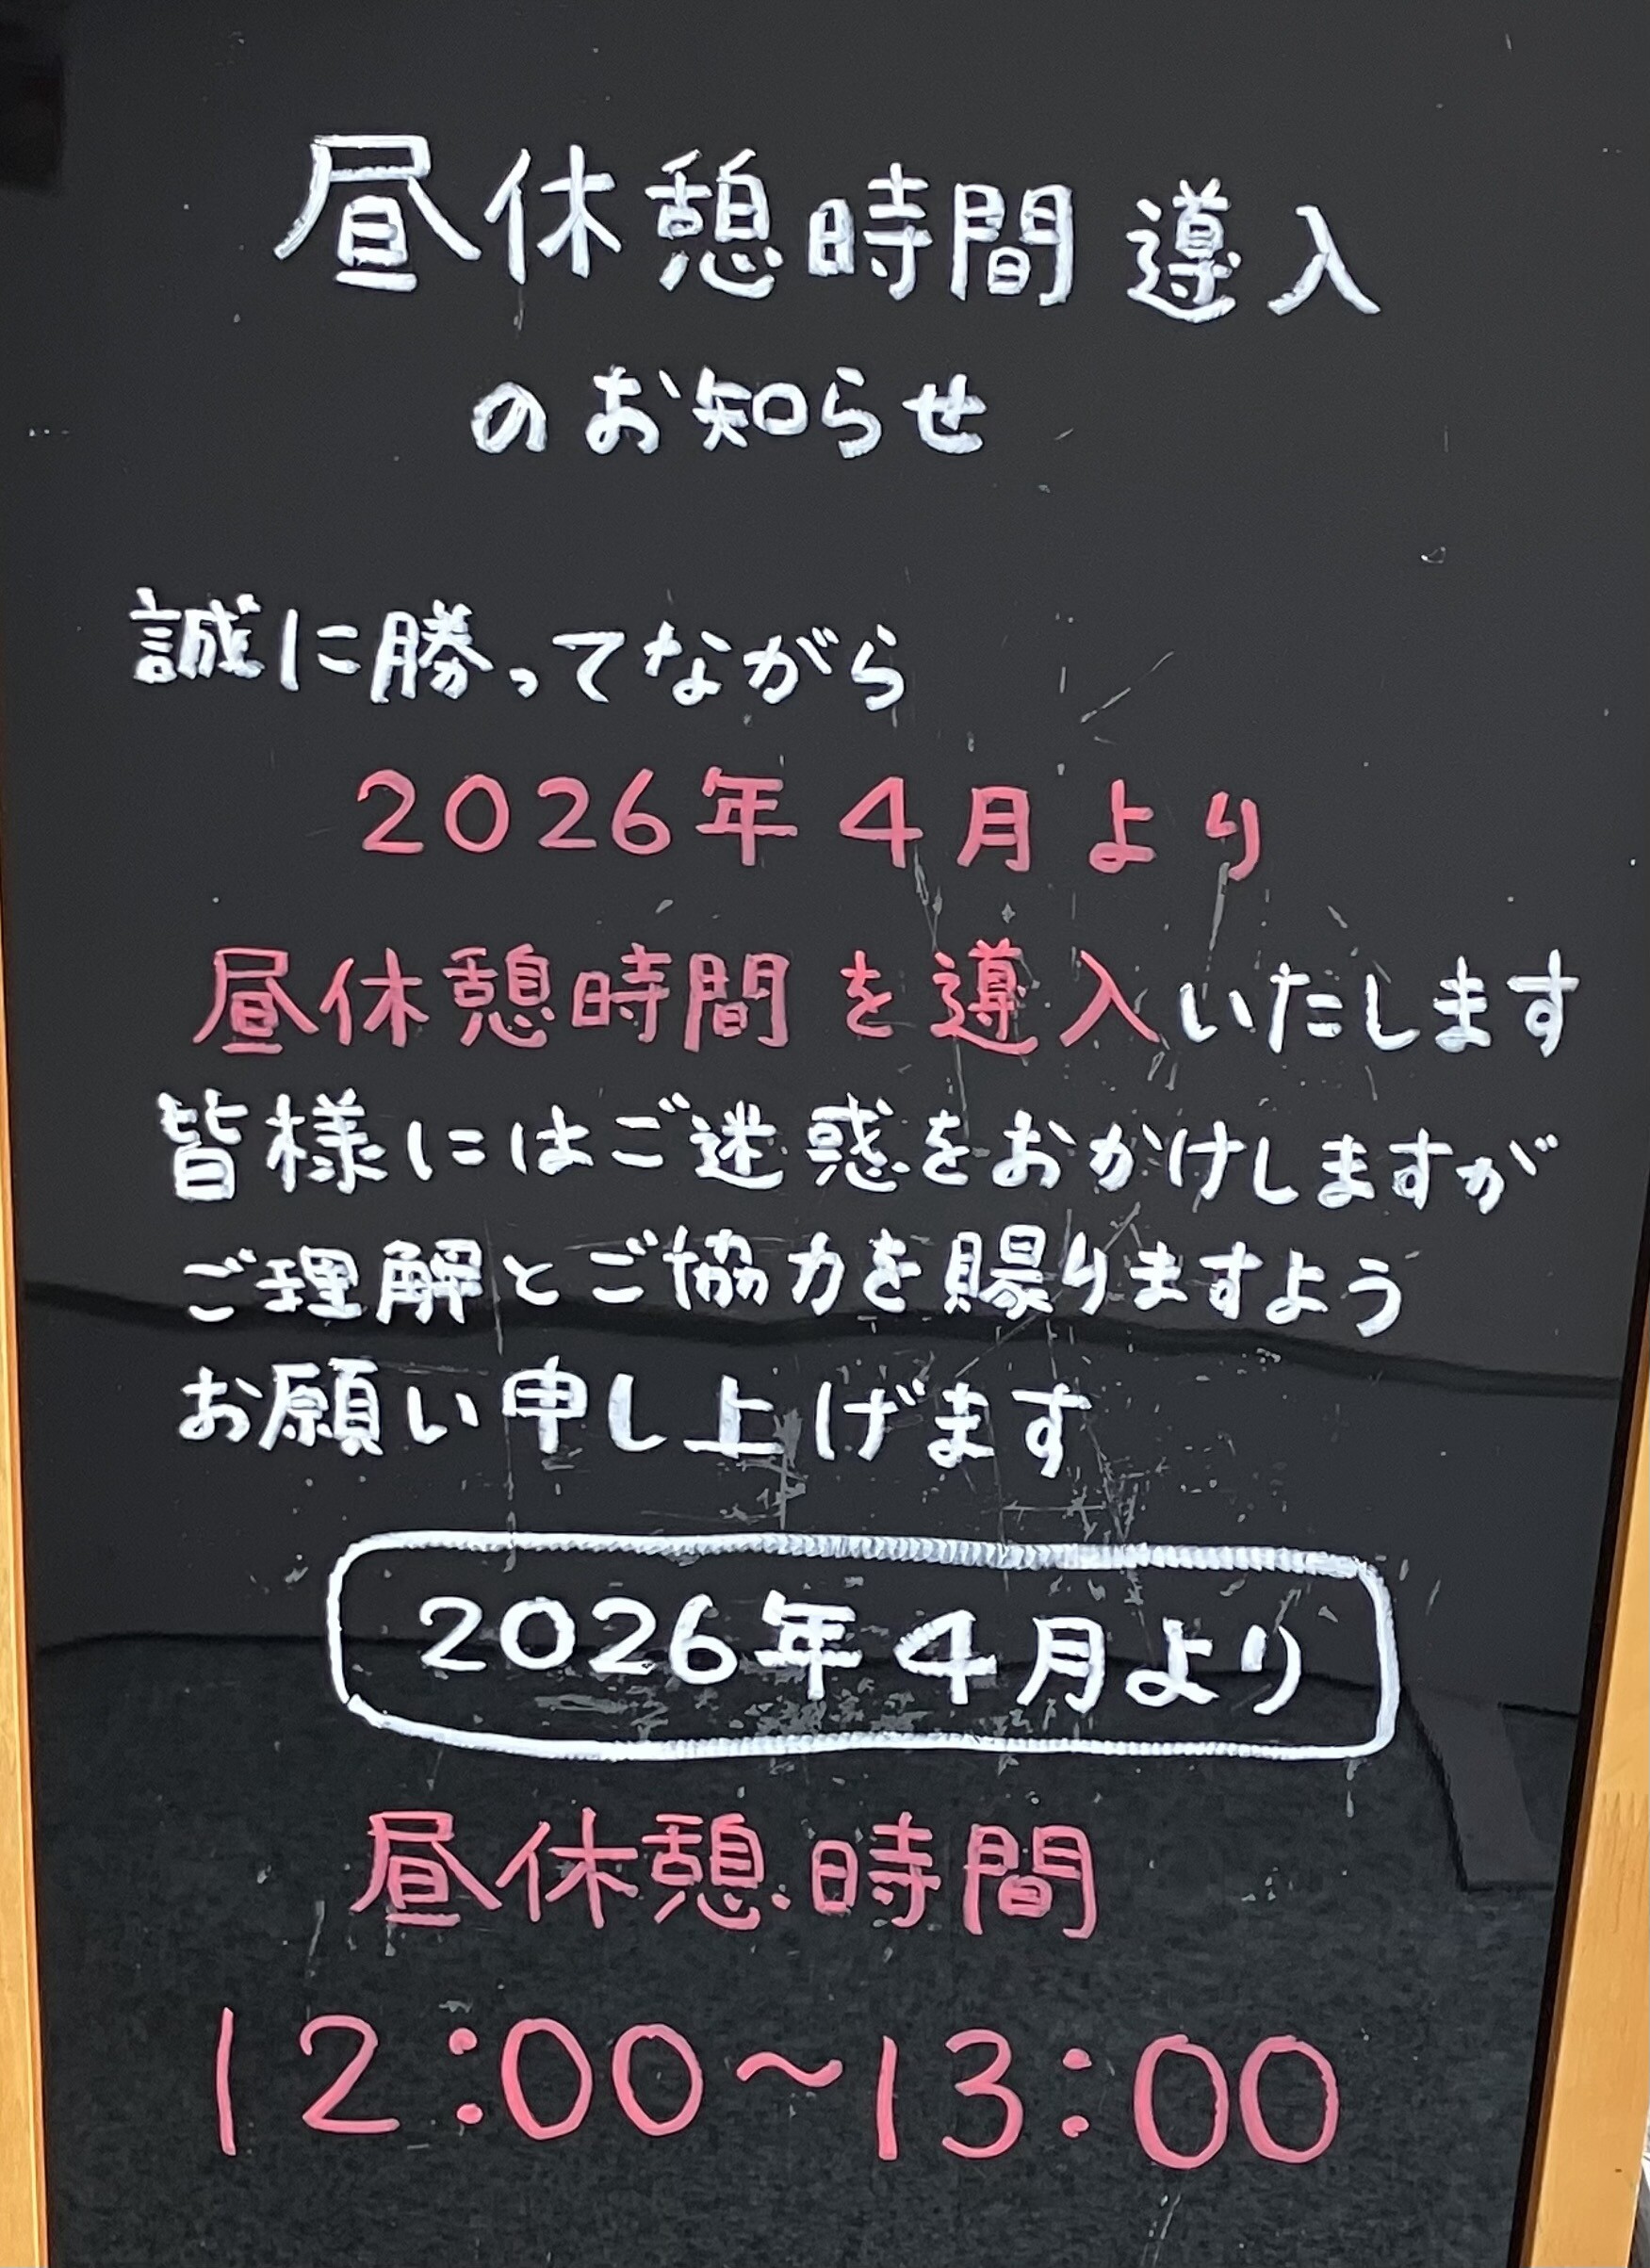 昼休憩時間導入
のお知らせ
誠に勝ってながら
2026年4月より
昼休憩時間を導入いたします
皆様にはご迷惑をおかけしますが
ご理解とご協力を賜りますよう
お願い申し上げます
2026年4月より
昼休憩時間
12:00～13:00